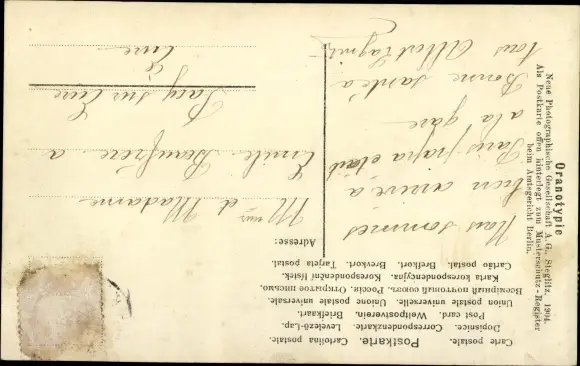 Carte postale. Postkarte. Cartolina postale.
Dopisnice. Correspondenzkarte. Levelező-Lap.
Post card. Weltpostverein. Briefkaart.
Union postale universelle. Unione postale universale.
Всемірный почтовый союзъ. Россія. Открытое письмо.
Karta korespondencyjna. Korespondenční lístek.
Cartão postal. Brefkort. Brevkort. Tarjeta postal.
Adresse:
Nous sommes
bien arrivé à
Paris papa était
a la gare
Bonne santé a
tous Albert
Mr et Madame
Emile Beaufrère a
Pacy sur Eure
Eure
Oranotypie
Neue Photographische Gesellschaft A.G., Steglitz, 1904.
Als Postkarte offen hinterlegt zum Musterschutz-Register
beim Amtsgericht Berlin.